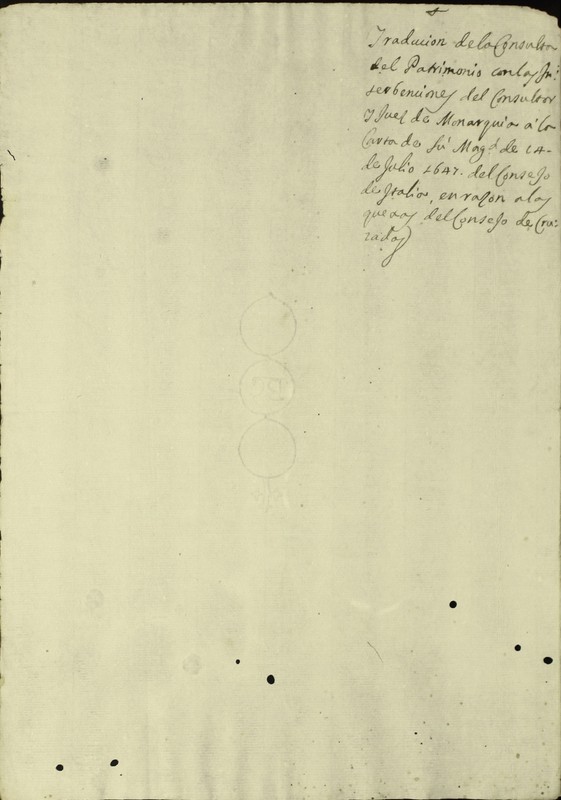 Traducion de la Consulta
del Patrimonio con las in
serbenciones del Consultor
y Juez de Monarquia a la
Carta de Su Magd de 14
de Julio 1647. del Consejo
de Italia, en razon a las
quexas del Consejo de Cru:
zada